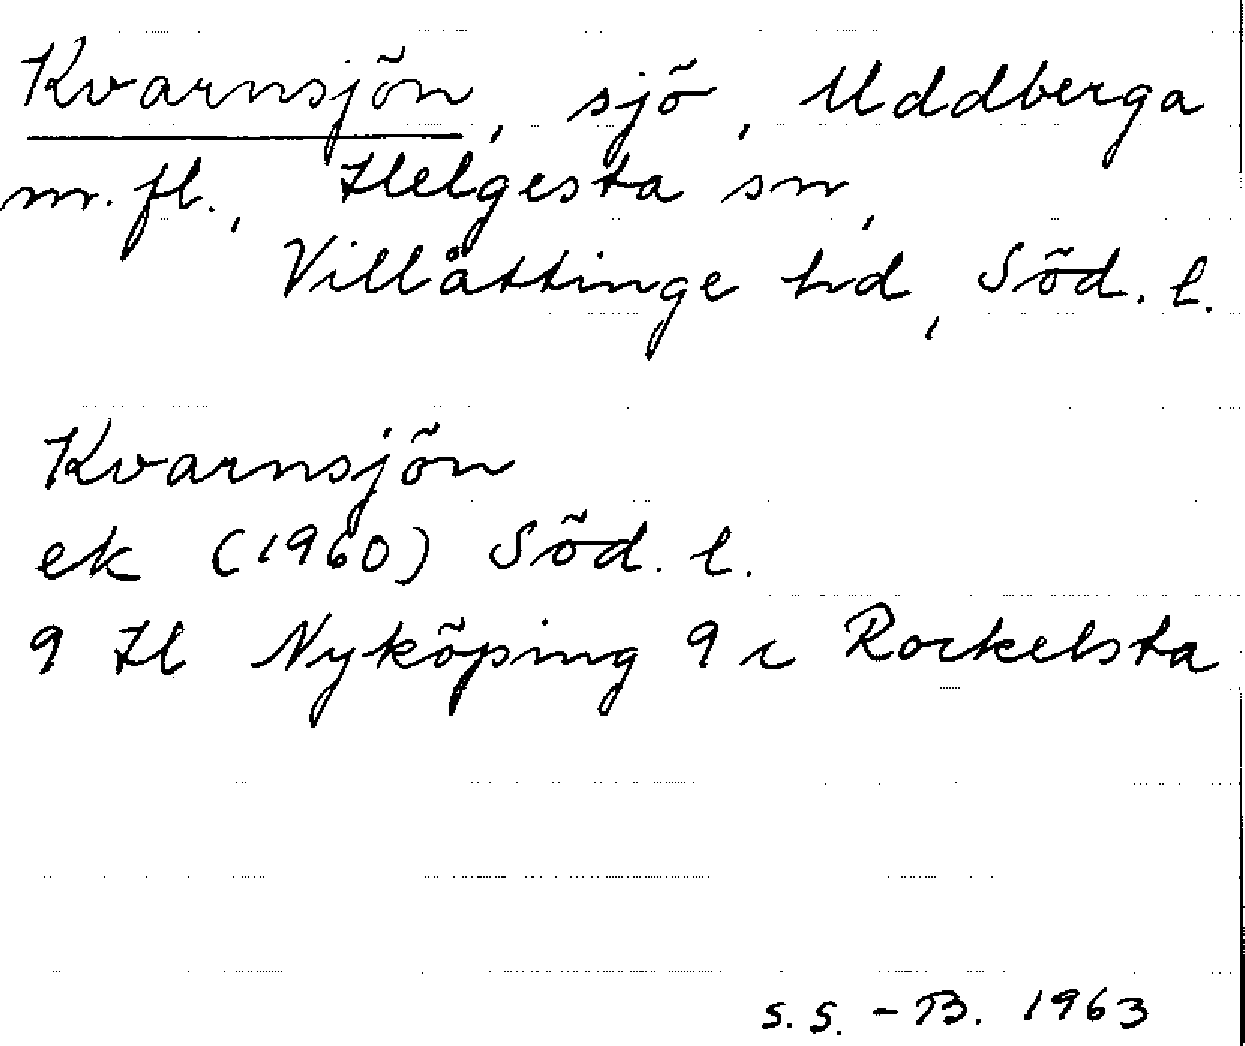 Kvarnsjön, sjö, Uddberga
m.fl., Helgesta sn,
Villåttinge hd, Söd. l.
Kvarnsjön
ek (1960) Söd. l.
9 H Nyköping 9 c Rockelsta
S.S.-B. 1963